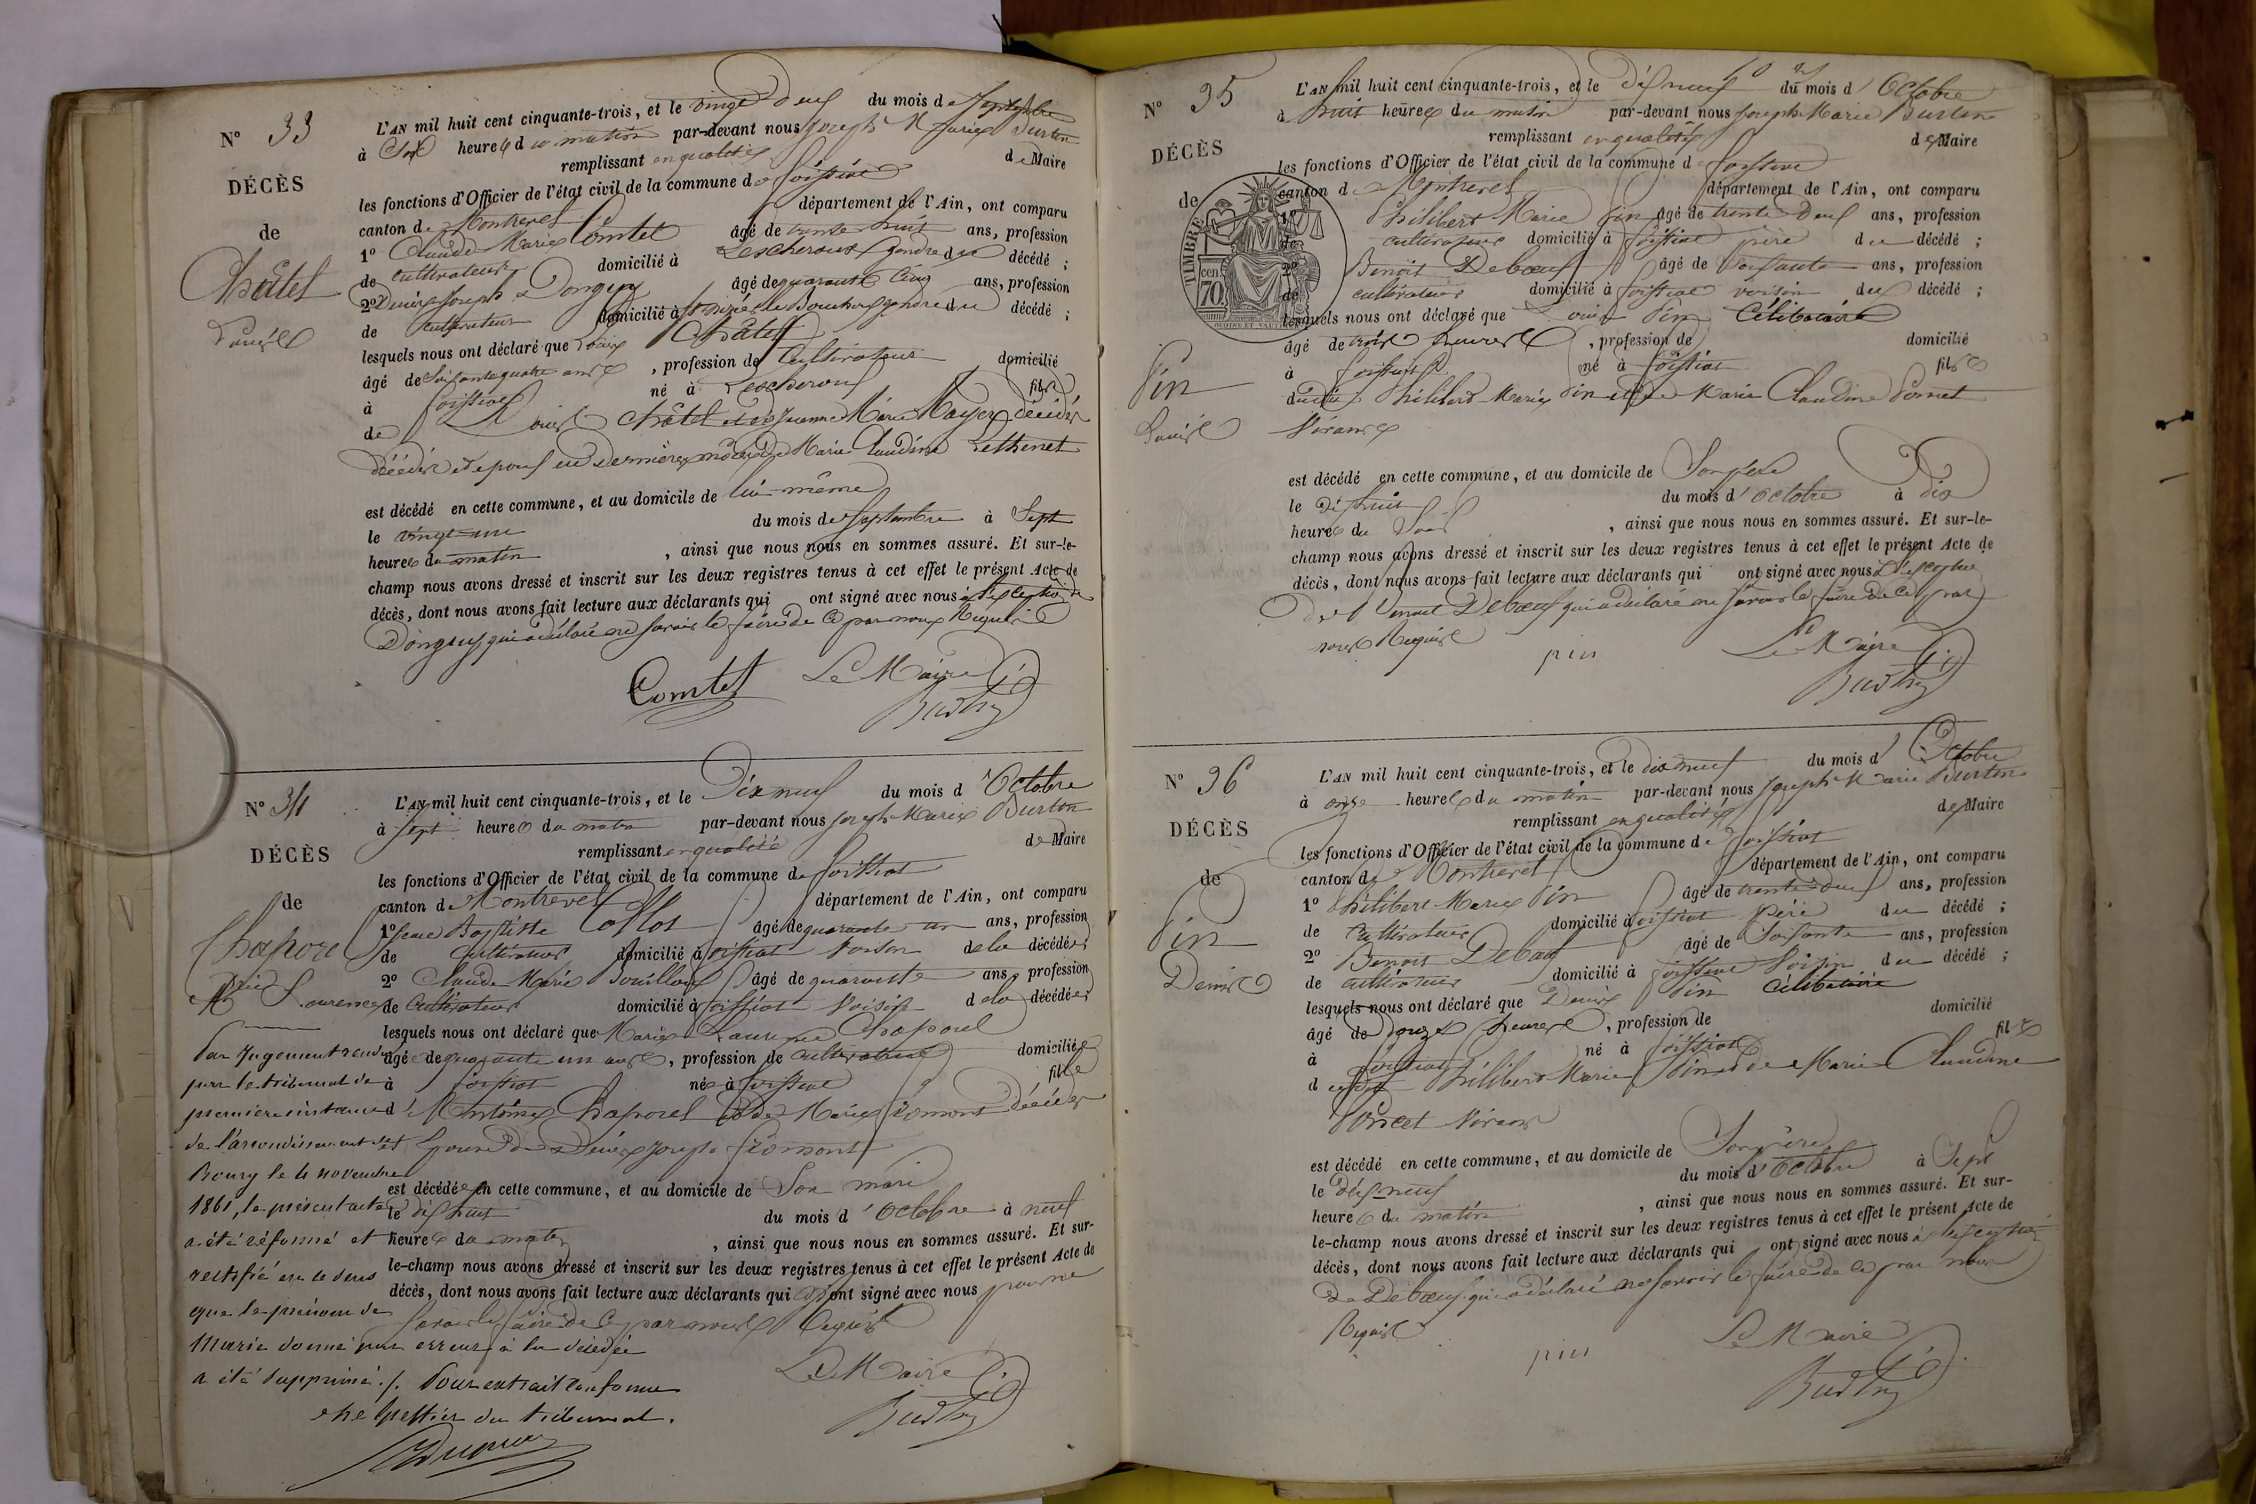 N° 33
DÉCÈS
de
Châtel
Louis
L'AN mil huit cent cinquante-trois, et le vingt deux du mois de Septembre
à Six heures du matin par-devant nous Joseph Marie Burton
remplissant en qualité de Maire
les fonctions d'Officier de l'état civil de la commune de Foissiat
canton de Montrevel département de l'Ain, ont comparu
1° Claude Marie Comtet âgé de trente huit ans, profession
de cultivateur domicilié à Lescheroux gendre du décédé ;
2° Denis Joseph Donguy âgé de quarante cinq ans, profession
de cultivateur domicilié à gendre du décédé ;
lesquels nous ont déclaré que Louis Châtel
âgé de Soixante quatre ans , profession de Cultivateur domicilié
à Foissiat né à Lescheroux fils
de Louis Châtel et de Jeanne Marie Mayer décédés
décédés et époux en dernières noces de Marie Claudine Lethenet
est décédé en cette commune, et au domicile de lui-même
le vingt-un du mois de Septembre à Sept
heures du matin , ainsi que nous nous en sommes assuré. Et sur-le-
champ nous avons dressé et inscrit sur les deux registres tenus à cet effet le présent Acte de
décès, dont nous avons fait lecture aux déclarants qui ont signé avec nous à l'exception de
Donguy qui a déclaré ne savoir le faire de ce par nous Requis
Comtet Le Maire
N° 34
DÉCÈS
de
Chaporel
Laurence
Par Jugement rendu
par le tribunal de
première instance
de l'arrondissement de
Bourg le 4 novembre
1861, le présent acte
a été réformé et
rectifié en ce sens
que le prénom de
Marie donné par erreur à la décédée
a été supprimé ./. Pour extrait conforme
le greffier du tribunal.
L'AN mil huit cent cinquante-trois, et le Dix neuf du mois d'Octobre
à Sept heures du matin par-devant nous Joseph Marie Burton
remplissant en qualité de Maire
les fonctions d'Officier de l'état civil de la commune de Foissiat
canton de Montrevel département de l'Ain, ont comparu
1° Jean Baptiste Collot âgé de quarante un ans, profession
de Cultivateur domicilié à Foissiat Voisin de la décédée
2° Claude Marie Bouilloux âgé de quarante ans, profession
de Cultivateur domicilié à Foissiat Voisin de la décédée
lesquels nous ont déclaré que Marie Laurence Chaporel
âgée de quarante un ans , profession de Cultivatrice domiciliée
à Foissiat née à Foissiat fille
d'Antoine Chaporel et de Marie Fromont décédés
et épouse de Denis Joseph Fromont
est décédée en cette commune, et au domicile de Son mari
le dix huit du mois d'Octobre à neuf
heures du matin , ainsi que nous nous en sommes assuré. Et sur-
le-champ nous avons dressé et inscrit sur les deux registres tenus à cet effet le présent Acte de
décès, dont nous avons fait lecture aux déclarants qui ont signé avec nous pour ne
savoir le faire de ce par nous Requis
Le Maire
N° 35
DÉCÈS
de
Pin
Louis
TIMBRE
70 cen
L'AN mil huit cent cinquante-trois, et le dix neuf du mois d'Octobre
à huit heures du matin par-devant nous Joseph Marie Burton
remplissant en qualité de Maire
les fonctions d'Officier de l'état civil de la commune de Foissiat
canton de Montrevel département de l'Ain, ont comparu
1° Philibert Marie Pin âgé de trente deux ans, profession
de cultivateur domicilié à Foissiat père du décédé ;
2° Benoit Debœuf âgé de Soixante ans, profession
de cultivateur domicilié à Foissiat voisin du décédé ;
lesquels nous ont déclaré que Louis Pin Célibataire
âgé de trois heures , profession de domicilié
à Foissiat né à Foissiat fils
dudit Philibert Marie Pin et de Marie Claudine Poncet
Vivants
est décédé en cette commune, et au domicile de Son père
le dix huit du mois d'Octobre à dix
heures du Soir , ainsi que nous nous en sommes assuré. Et sur-le-
champ nous avons dressé et inscrit sur les deux registres tenus à cet effet le présent Acte de
décès, dont nous avons fait lecture aux déclarants qui ont signé avec nous à l'exception
de Benoit Debœuf qui a déclaré ne savoir le faire de ce par
nous Requis
pin Le Maire
N° 36
DÉCÈS
de
Pin
Denis
L'AN mil huit cent cinquante-trois, et le dix neuf du mois d'Octobre
à onze heures du matin par-devant nous Joseph Marie Burton
remplissant en qualité de Maire
les fonctions d'Officier de l'état civil de la commune de Foissiat
canton de Montrevel département de l'Ain, ont comparu
1° Philibert Marie Pin âgé de trente deux ans, profession
de Cultivateur domicilié à Foissiat Père du décédé ;
2° Benoit Debœuf âgé de Soixante ans, profession
de cultivateur domicilié à Foissiat Voisin du décédé ;
lesquels nous ont déclaré que Denis Pin Célibataire
âgé de douze heures , profession de domicilié
à Foissiat né à Foissiat fils
dudit Philibert Marie Pin et de Marie Claudine
Poncet Vivants
est décédé en cette commune, et au domicile de Son père
le dix-neuf du mois d'Octobre à Sept
heures du matin , ainsi que nous nous en sommes assuré. Et sur-
le-champ nous avons dressé et inscrit sur les deux registres tenus à cet effet le présent Acte de
décès, dont nous avons fait lecture aux déclarants qui ont signé avec nous à l'exception
de Debœuf qui a déclaré ne savoir le faire de ce par nous
Requis
pin Le Maire